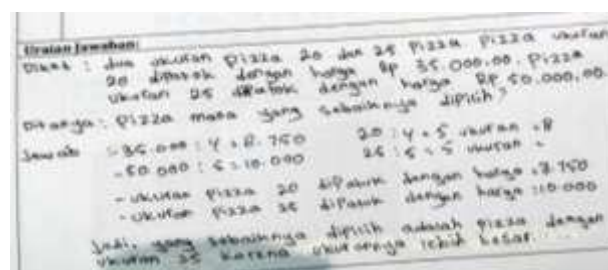 Uraian Jawaban:
Diket : dua ukuran pizza 20 dan 25 pizza pizza ukuran
20 dipatok dengan harga Rp 35.000,00. pizza
ukuran 25 dipatok dengan harga Rp 50.000,00
Ditanya : pizza mana yang sebaiknya dipilih ?
Jawab - 35.000 : 4 = 8.750 20 : 4 = 5 ukuran
- 50.000 : 5 = 10.000 25 : 5 = 5 ukuran
- ukuran pizza 20 dipatok dengan harga = 8.750
- ukuran pizza 25 dipatok dengan harga : 10.000
Jadi, yang sebaiknya dipilih adalah pizza dengan
ukuran 25 karena ukurannya lebih besar.